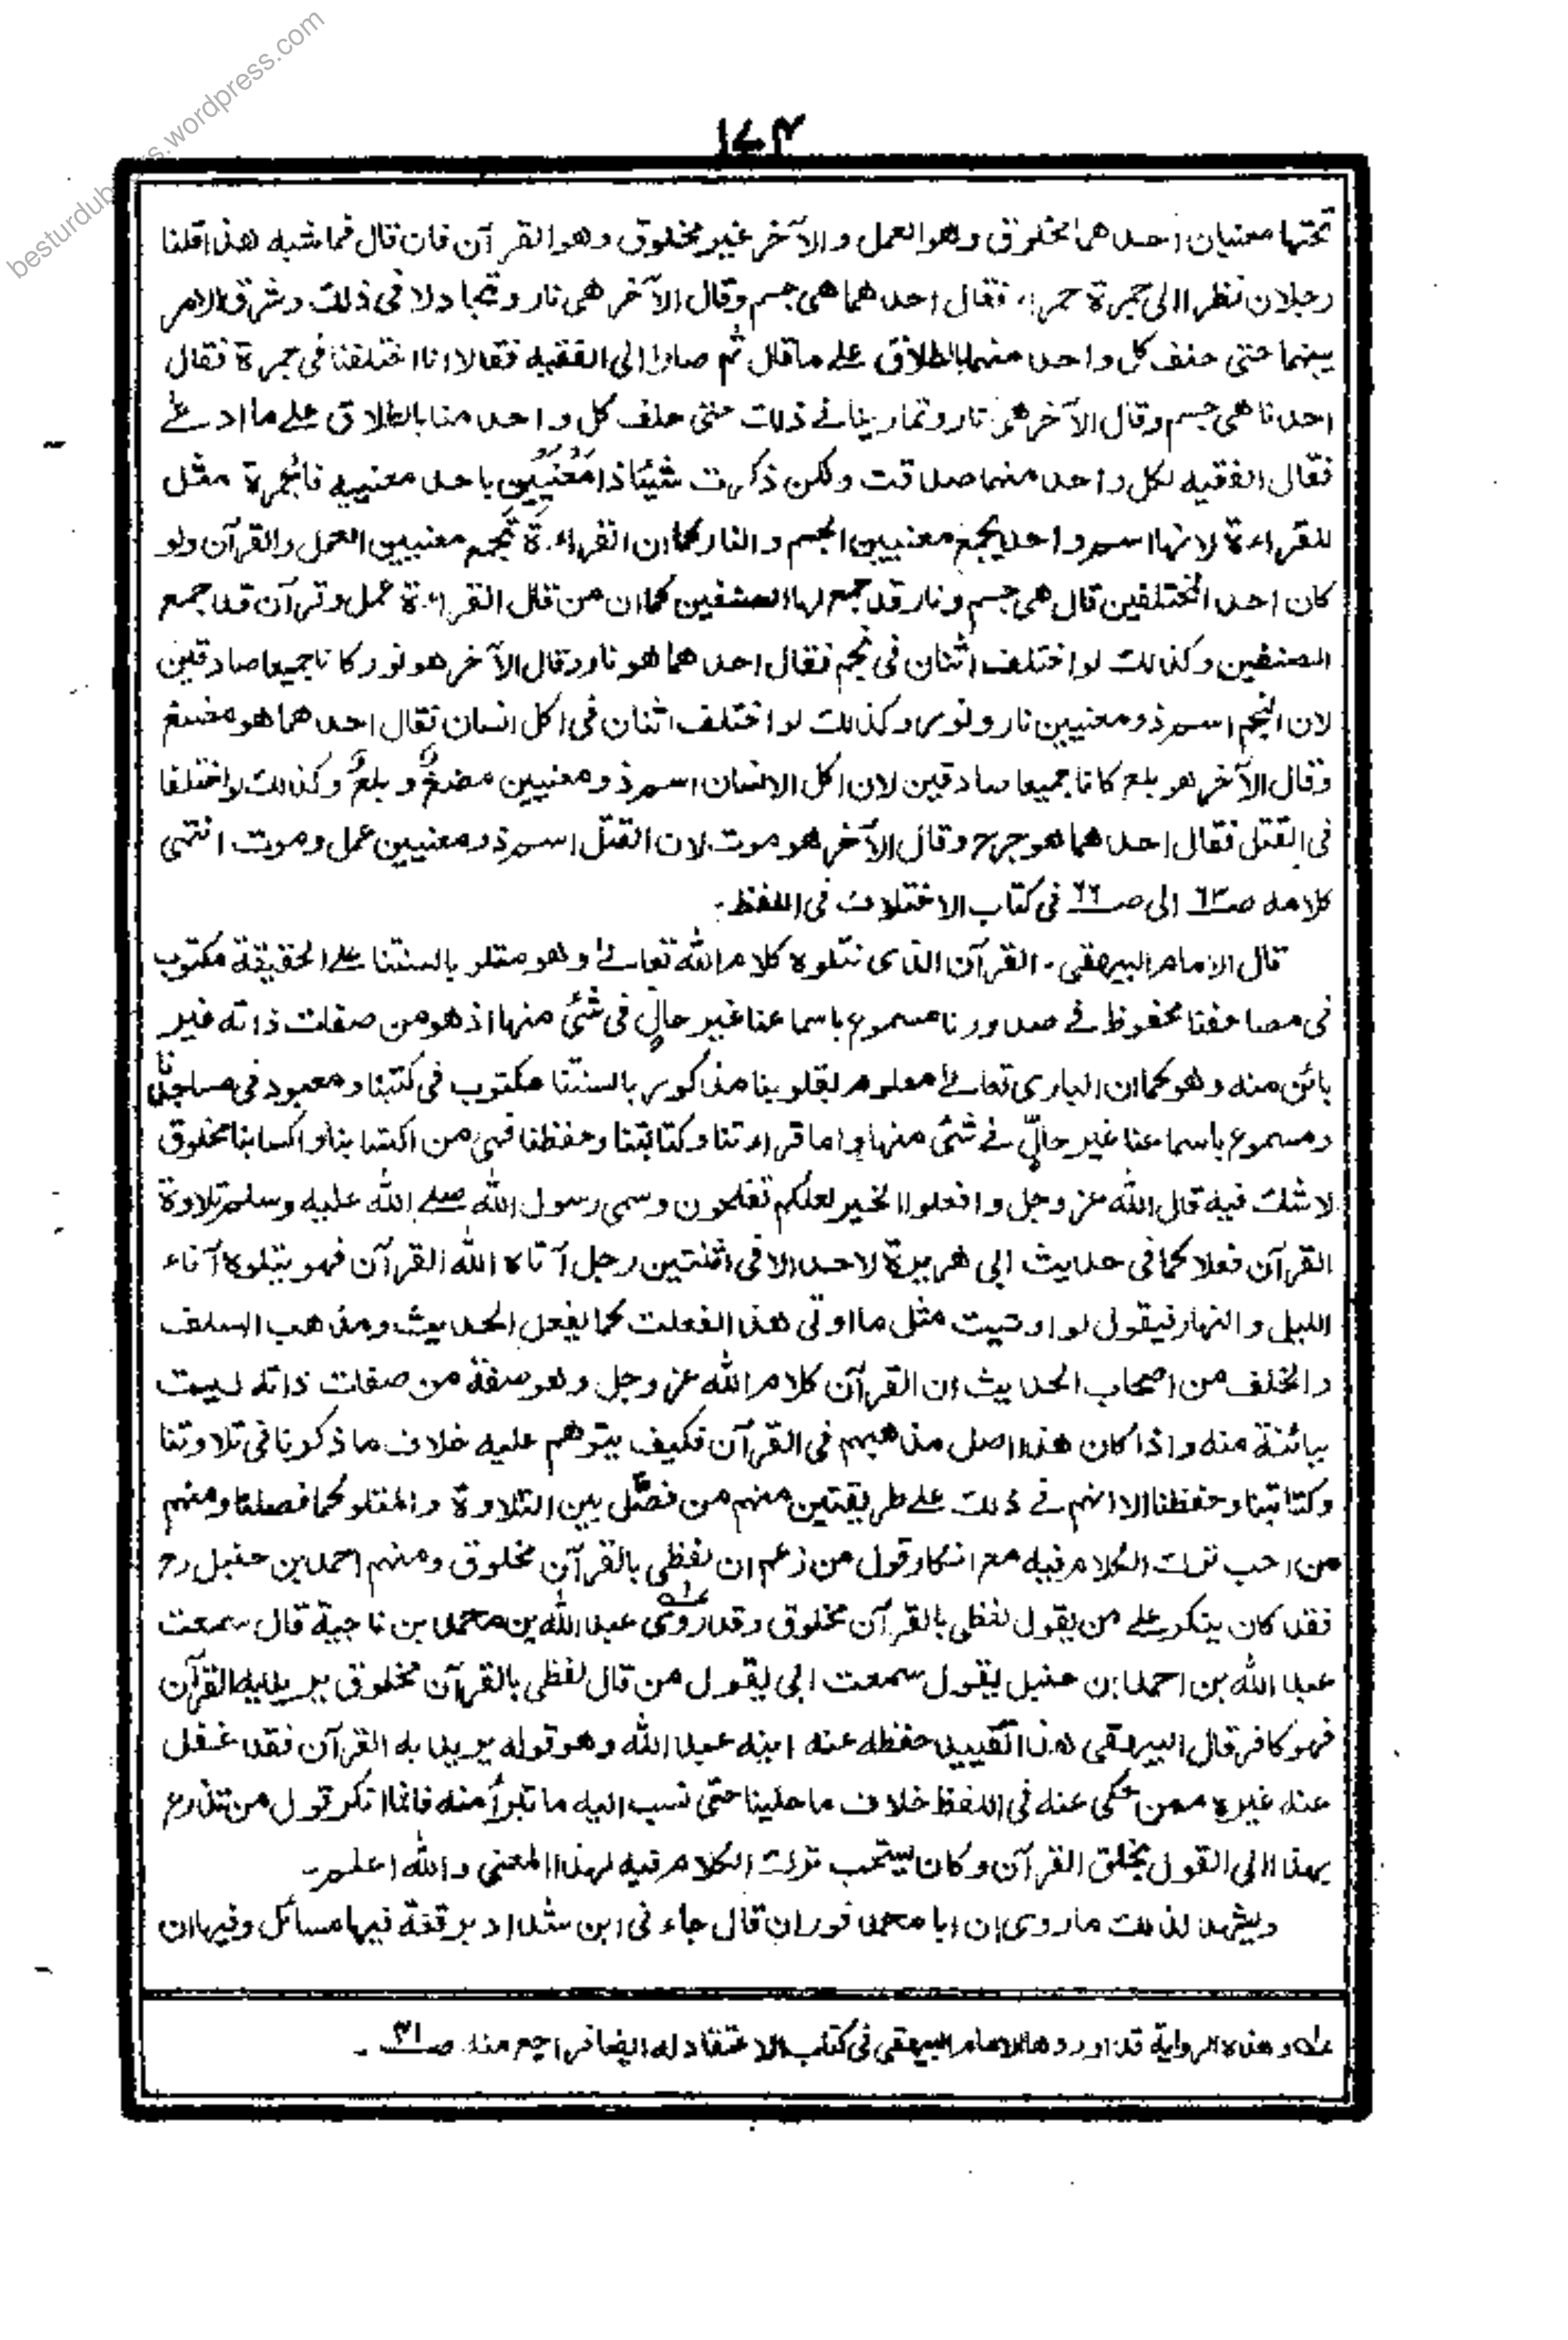 besturdub s.wordpress.com
١٧٣
تحتها معنيان احدهما مخلوق وهو العمل والآخر غير مخلوق وهو القرآن فان قال فما شبه هذا قلنا
رجلان نظرا الى جمرة حمراء فقال احدهما هى جسم وقال الآخر هى نار وتجادلا فى ذلك وشرق الامر
بينهما حتى حلف كل واحد منهما بالطلاق على ما قال ثم صارا الى الفقيه فقالا انا اختلفنا فى جمرة فقال
احدنا هى جسم وقال الآخر هى نار وتمارينا فى ذلك حتى حلف كل واحد منا بالطلاق على ما ادعى
فقال الفقيه لكل واحد منهما صدقت ولكن ذكرت شيئا ذا معنيين باحد معنييه فالجمرة مثل
للقراءة لانها اسم واحد يجمع معنيين الجسم والنار كما ان القراءة تجمع معنيين العمل والقرآن ولو
كان احد المختلفين قال هى جسم ونار قد جمع لها الصنفين كما ان من قال القراءة عمل وقرآن قد جمع
الصنفين وكذلك لو اختلف اثنان فى نجم فقال احدهما هو نار وقال الآخر هو نور كانا جميعا صادقين
لان النجم اسم ذو معنيين نار ونور وكذلك لو اختلف اثنان فى اكل انسان فقال احدهما هو مضغ
وقال الآخر هو بلع كانا جميعا صادقين لان اكل الانسان اسم ذو معنيين مضغ و بلع وكذلك لو اختلفا
فى القتل فقال احدهما هو جرح وقال الآخر هو موت لان القتل اسم ذو معنيين عمل وموت انتهى
كلامه ص٦٣ الى ص٦٦ فى كتاب الاختلاف فى اللفظ۔
قال الامام البيهقى۔ القرآن الذى نتلوه كلام الله تعالى وهو متلو بالسنتنا على الحقيقة مكتوب
فى مصاحفنا محفوظ فى صدورنا مسموع باسماعنا غير حالٍّ فى شئ منها اذ هو من صفات ذاته غير
بائن منه وهو كما ان البارى تعالى معلوم لقلوبنا مذكور بالسنتنا مكتوب فى كتبنا و معبود فى مساجدنا
ومسموع باسماعنا غير حالٍّ فى شئ منها واما قراءتنا وكتابتنا وحفظنا فهى من اكتسابنا واكسابنا مخلوق
لا شك فيه قال الله عز وجل وافعلوا الخير لعلكم تفلحون وسمى رسول الله صلى الله عليه وسلم تلاوة
القرآن فعلا كما فى حديث ابى هريرة لاحسد الا فى اثنتين رجل آتاه الله القرآن فهو يتلوه آناء
الليل والنهار فيقول لو اوتيت مثل ما اوتى هذا لفعلت كما يفعل الحديث ومذهب السلف
والخلف من اصحاب الحديث ان القرآن كلام الله عز وجل وهو صفة من صفات ذاته ليست
ببائنة منه واذا كان هذا اصل مذاهبهم فى القرآن فكيف يتوهم عليه خلاف ما ذكرنا فى تلاوتنا
وكتابتنا وحفظنا الا انهم فى ذلك على طريقتين منهم من فصّل بين التلاوة والمتلو كما فصلنا ومنهم
من احب ترك الكلام فيه مع انكار قول من زعم ان لفظى بالقرآن مخلوق ومنهم احمد بن حنبل رح
فقد كان ينكر على من يقول لفظى بالقرآن مخلوق وقد روى عبد الله بن محمد بن ناجية قال سمعت
عبد الله بن احمد بن حنبل يقول سمعت ابى يقول من قال لفظى بالقرآن مخلوق يريد به القرآن
فهو كافر قال البيهقى هذا التقييد حفظه عنه ابنه عبد الله وهو قوله يريد به القرآن فقد غفل
عنه غيره ممن حكى عنه فى اللفظ خلاف ما حكينا حتى نسب اليه ما تبرأ منه فانما انكر قول من تذرع
بهذا الى القول بخلق القرآن وكان يستحب ترك الكلام فيه لهذا المعنى والله اعلم۔
ويشهد لذلك ما روى ان ابا محمد فوران قال جاءنى ابن شداد برقعة فيها مسائل وفيها ان
عله وهذه الرواية قد اوردها الامام البيهقى فى كتاب الاعتقاد له ايضا فراجع منه ص٣١۔